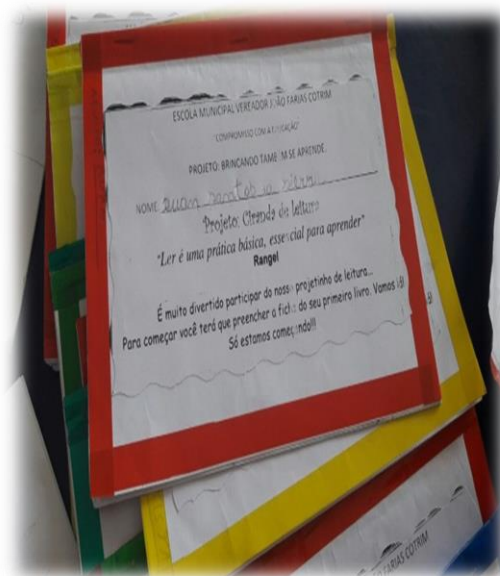 ESCOLA MUNICIPAL VEREADOR JOÃO FARIAS COTRIM
"COMPROMISSO COM A EDUCAÇÃO"
PROJETO: BRINCANDO TAMBÉM SE APRENDE.
NOME: santos
Projeto: Ciranda de leitura
"Ler é uma prática básica, essencial para aprender"
Rangel
É muito divertido participar do nosso projetinho de leitura...
Para começar você terá que preencher a ficha do seu primeiro livro. Vamos lá!
Só estamos começando!!!
FARIAS COTRIM